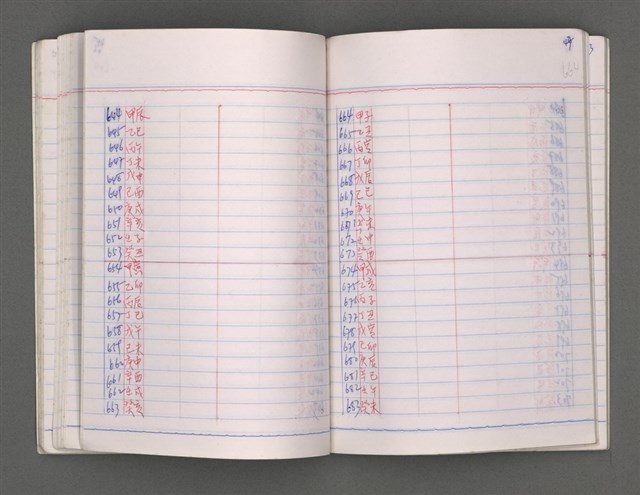 644 甲辰
645 乙巳
646 丙午
647 丁未
648 戊申
649 己酉
650 庚戌
651 辛亥
652 壬子
653 癸丑
654 甲寅
655 乙卯
656 丙辰
657 丁巳
658 戊午
659 己未
660 庚申
661 辛酉
662 壬戌
663 癸亥
664 甲子
665 乙丑
666 丙寅
667 丁卯
668 戊辰
669 己巳
670 庚午
671 辛未
672 壬申
673 癸酉
674 甲戌
675 乙亥
676 丙子
677 丁丑
678 戊寅
679 己卯
680 庚辰
681 辛巳
682 壬午
683 癸未